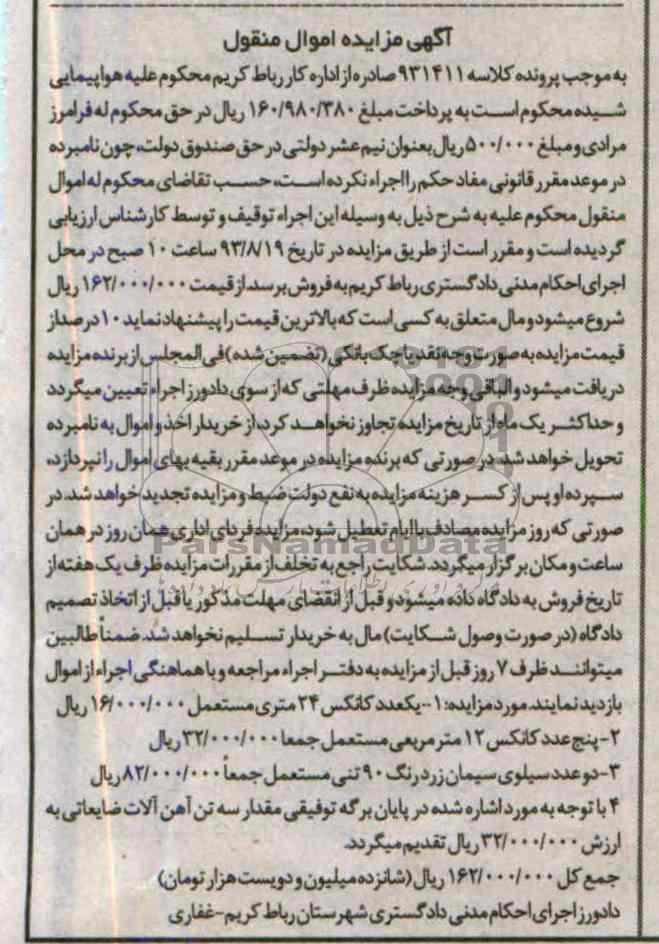 آگهی مزایده اموال منقول
به موجب پرونده کلاسه ۹۳۱۴۱۱ صادره از اداره کار رباط کریم محکوم علیه هواپیمایی
شیده محکوم است به پرداخت مبلغ ۱۶۰/۹۸۰/۳۸۰ ریال در حق محکوم له فرامرز
مرادی و مبلغ ۵۰۰/۰۰۰ ریال بعنوان نیم عشر دولتی در حق صندوق دولت، چون نامبرده
در موعد مقرر قانونی مفاد حکم را اجراء نکرده است، حسب تقاضای محکوم له اموال
منقول محکوم علیه به شرح ذیل به وسیله این اجراء توقیف و توسط کارشناس ارزیابی
گردیده است و مقرر است از طریق مزایده در تاریخ ۹۳/۸/۱۹ ساعت ۱۰ صبح در محل
اجرای احکام مدنی دادگستری رباط کریم به فروش برسد. از قیمت ۱۶۲/۰۰۰/۰۰۰ ریال
شروع میشود و مال متعلق به کسی است که بالاترین قیمت را پیشنهاد نماید ۱۰ درصد از
قیمت مزایده به صورت وجه نقد یا چک بانکی (تضمین شده) فی المجلس از برنده مزایده
دریافت میشود و الباقی وجه مزایده ظرف مهلتی که از سوی دادورز اجراء تعیین میگردد
و حداکثر یک ماه از تاریخ مزایده تجاوز نخواهد کرد، از خریدار اخذ و اموال به نامبرده
تحویل خواهد شد. در صورتی که برنده مزایده در موعد مقرر بقیه بهای اموال را نپردازد،
سپرده او پس از کسر هزینه مزایده به نفع دولت ضبط و مزایده تجدید خواهد شد. در
صورتی که روز مزایده مصادف با ایام تعطیل شود، مزایده فردای اداری همان روز در همان
ساعت و مکان برگزار میگردد. شکایت راجع به تخلف از مقررات مزایده ظرف یک هفته از
تاریخ فروش به دادگاه داده میشود و قبل از انقضای مهلت مذکور یا قبل از اتخاذ تصمیم
دادگاه (در صورت وصول شکایت) مال به خریدار تسلیم نخواهد شد. ضمناً طالبین
میتوانند ظرف ۷ روز قبل از مزایده به دفتر اجراء مراجعه و با هماهنگی اجراء از اموال
بازدید نمایند. مورد مزایده: ۱--یکعدد کانکس ۲۴ متری مستعمل ۱۶/۰۰۰/۰۰۰ ریال
۲-پنج عدد کانکس ۱۲ متر مربعی مستعمل جمعا ۳۲/۰۰۰/۰۰۰ ریال
۳-دو عدد سیلوی سیمان زرد رنگ ۹۰ تنی مستعمل جمعاً ۸۲/۰۰۰/۰۰۰ ریال
۴ با توجه به مورد اشاره شده در پایان برگه توقیفی مقدار سه تن آهن آلات ضایعاتی به
ارزش ۳۲/۰۰۰/۰۰۰ ریال تقدیم میگردد.
جمع کل ۱۶۲/۰۰۰/۰۰۰ ریال (شانزده میلیون و دویست هزار تومان)
دادورز اجرای احکام مدنی دادگستری شهرستان رباط کریم-غفاری
ParsNamadData